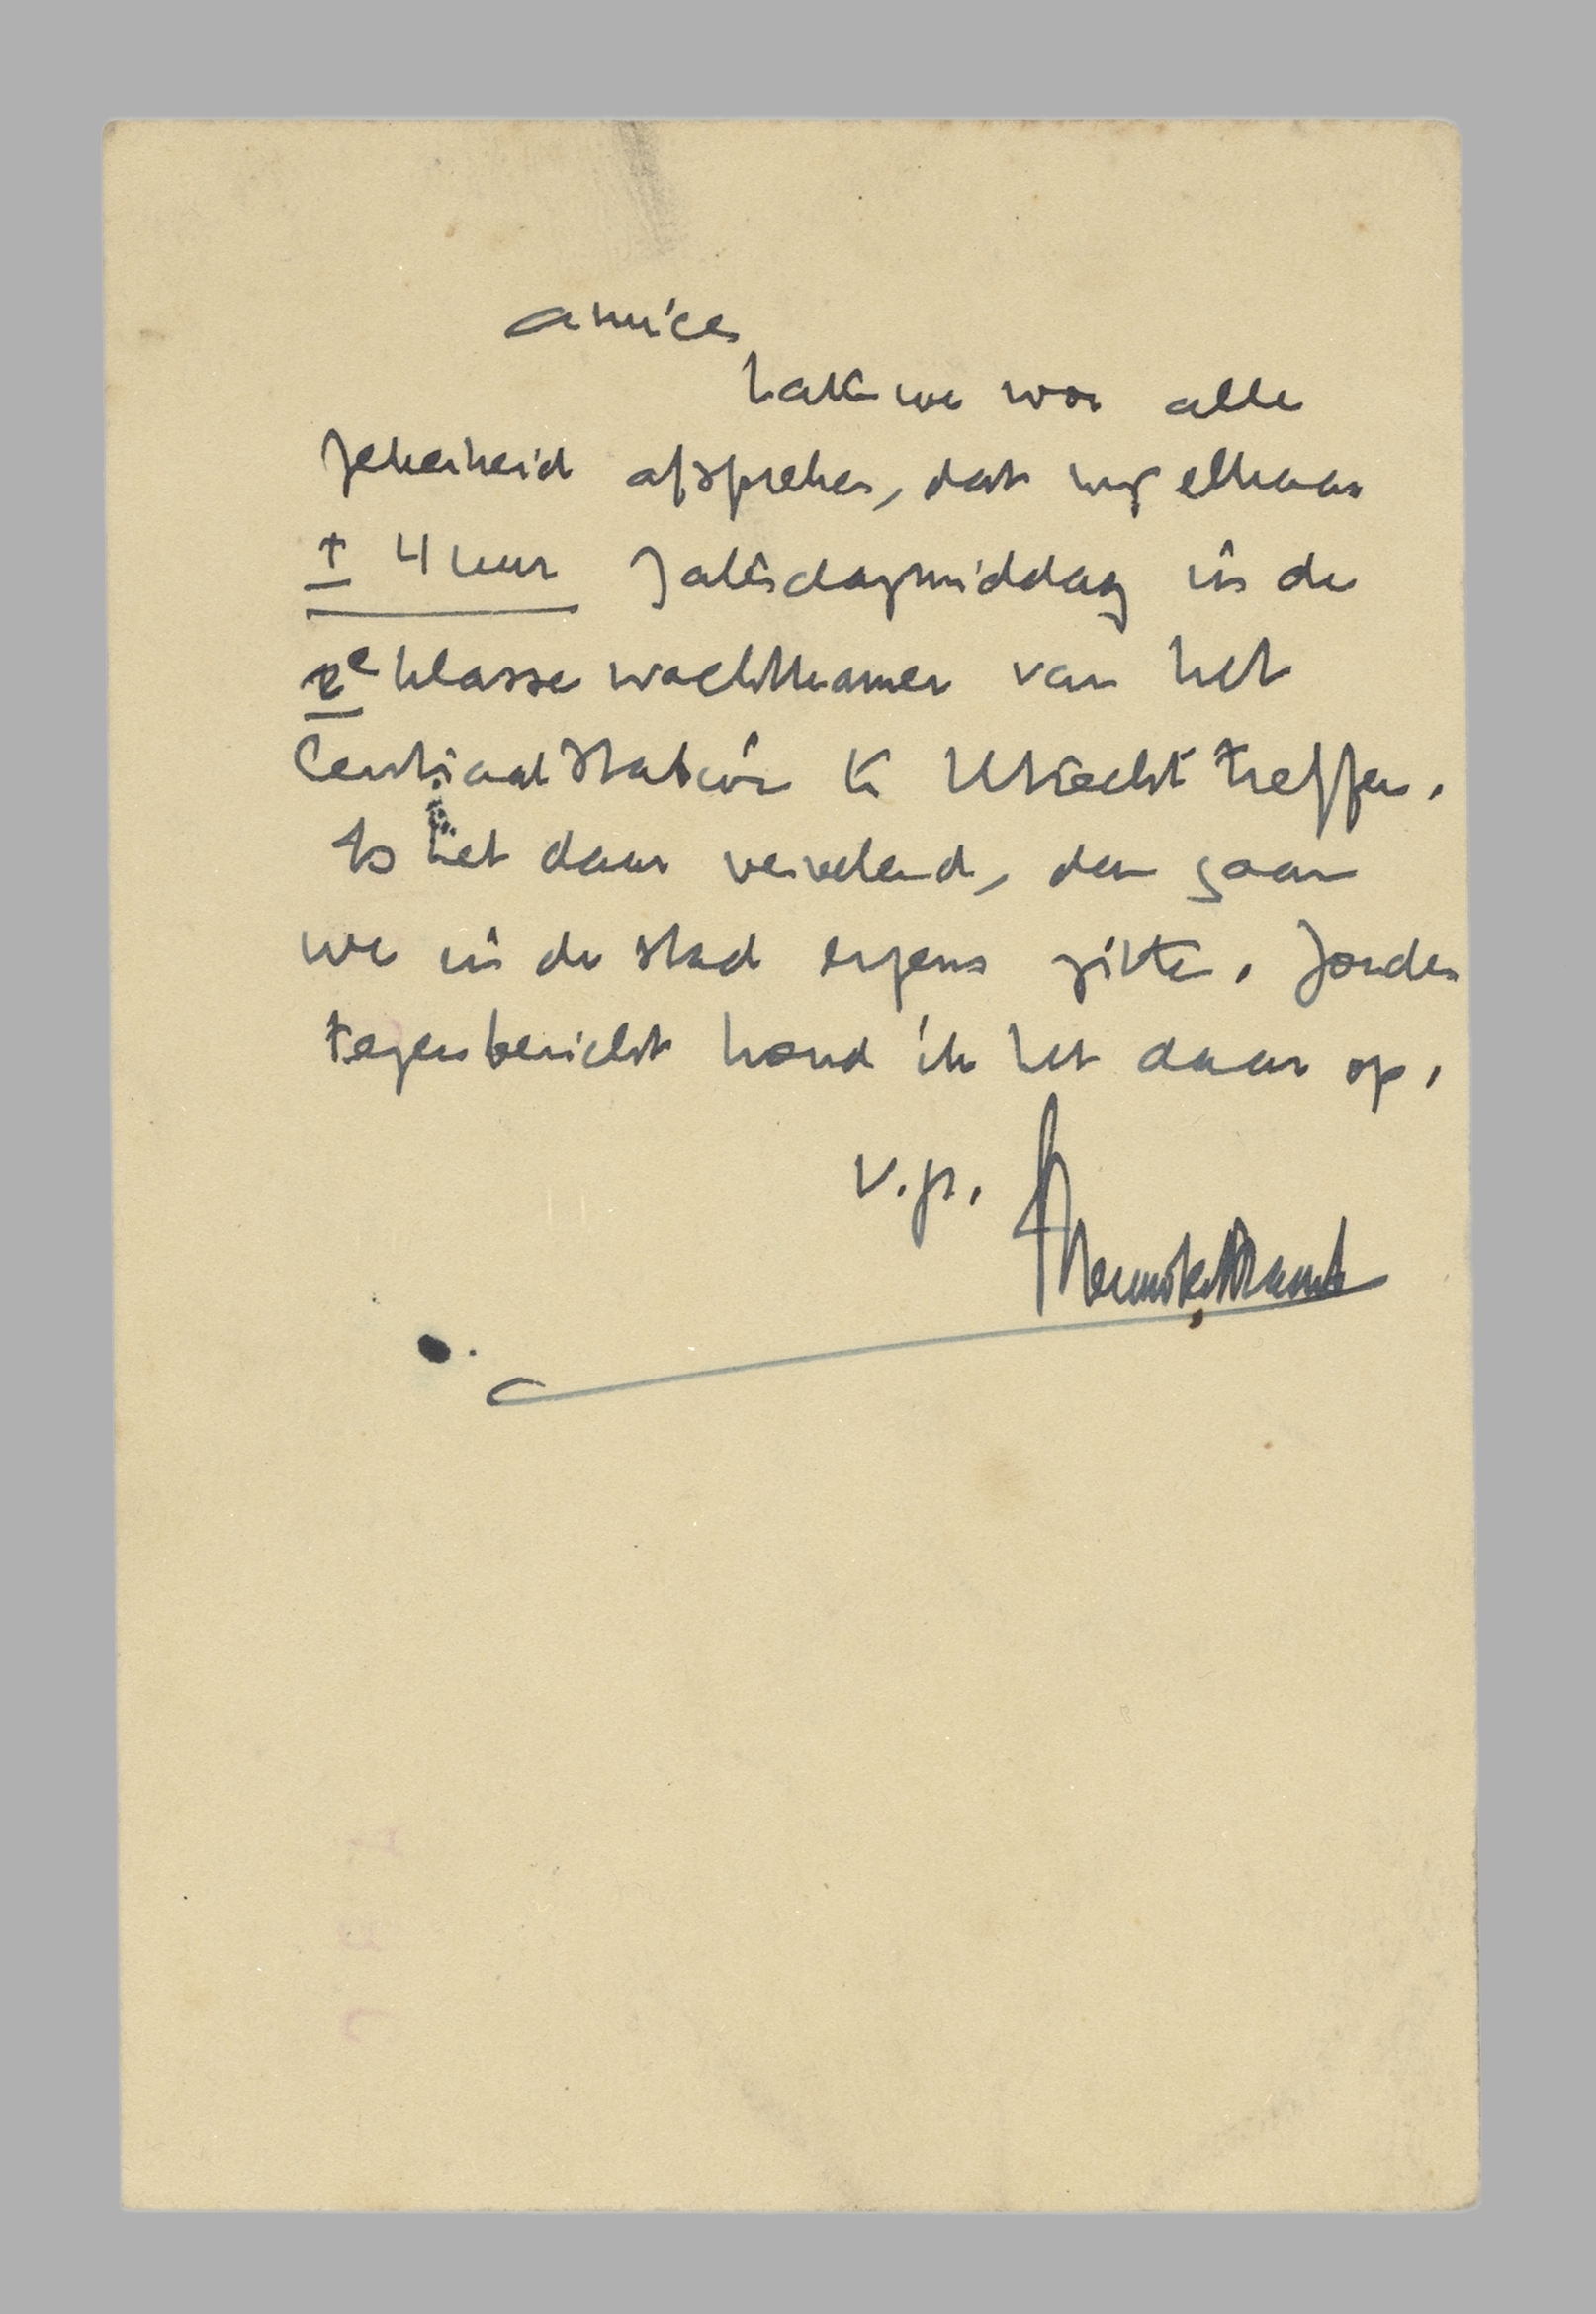 amice,
laten we voor alle
zekerheid afspreken, dat wij elkaar
± 4 uur Zaterdagmiddag in de
2e klasse wachtkamer van het
Centraal Station te Utrecht treffen.
Is het daar vervelend, dan gaan
we in de stad ergens zitten. Zonder
tegenbericht houd ik het daar op.
v.gr.